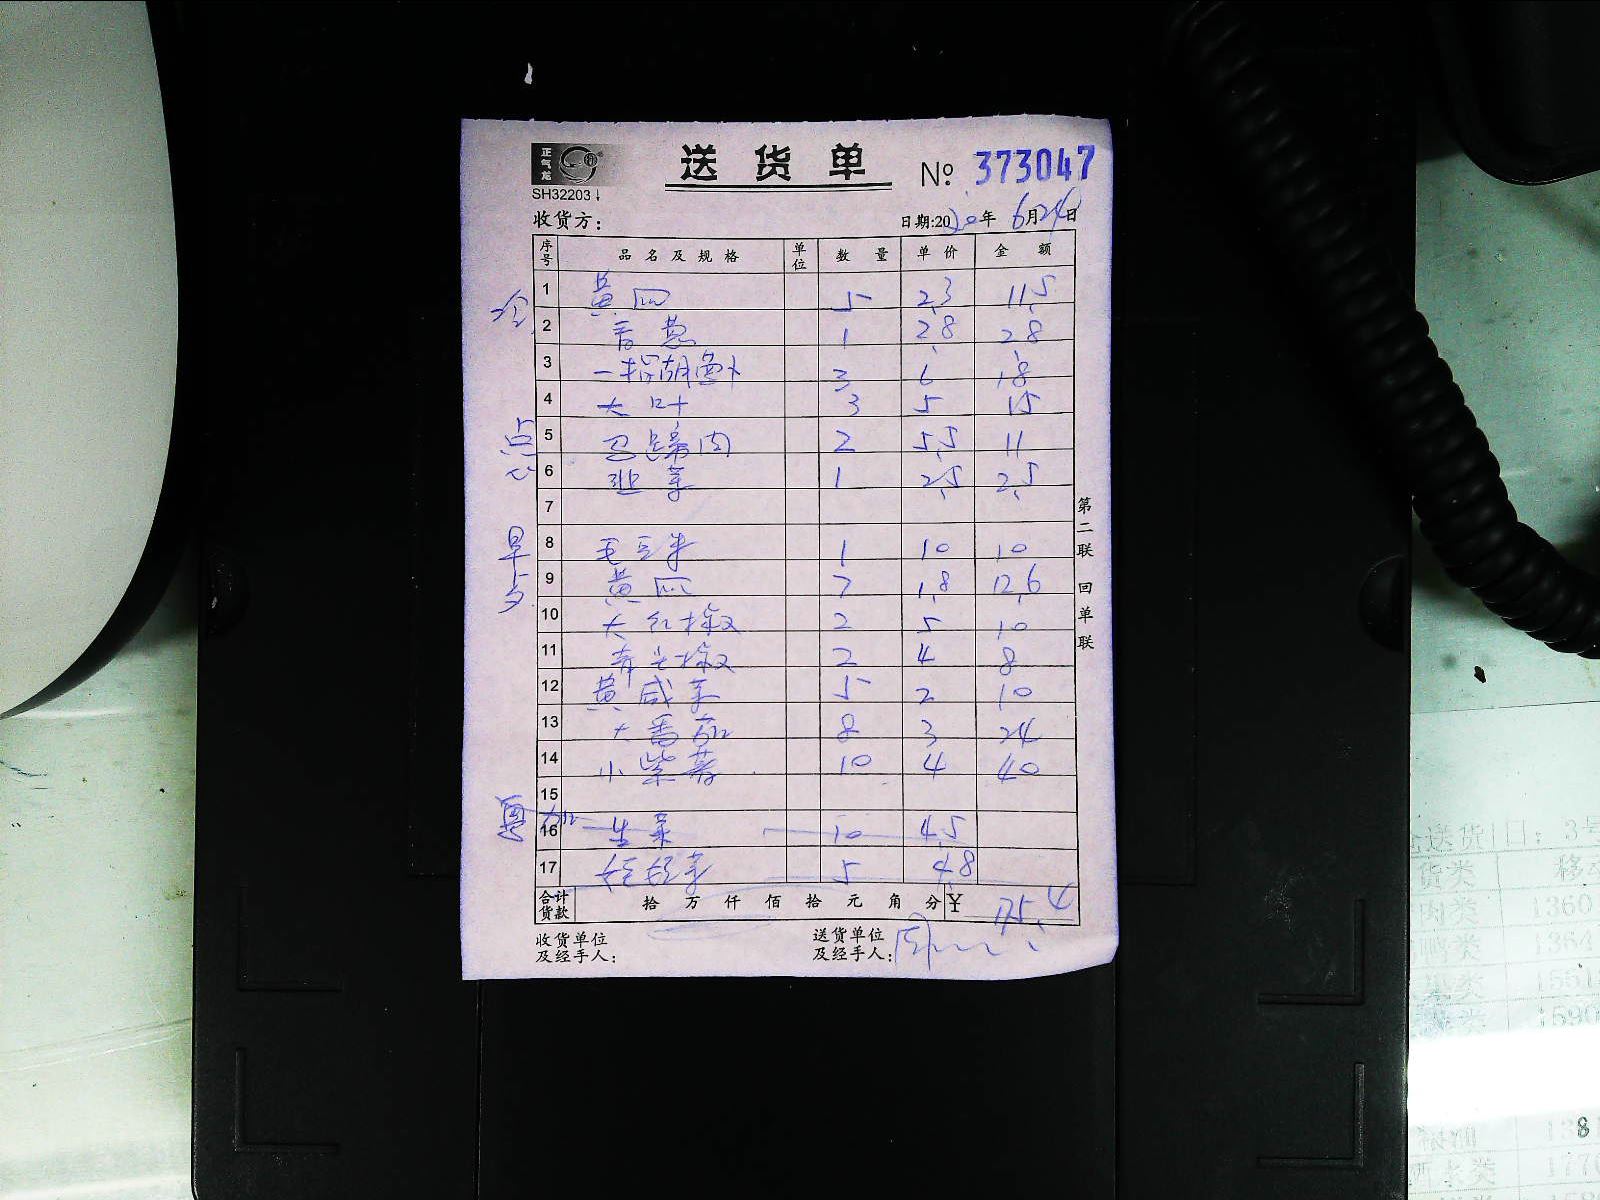 正气龙
SH32203
送货单 № 373047
收货方: 日期:2020年 6月24日
序号 品名及规格 单位 数量 单价 金额
冷
1 黄瓜 5 2.3 11.5
2 香葱 1 2.8 2.8
3 胡萝卜 3 6 18
4 大叶 3 5 15
点心
5 马蹄肉 2 5.5 11
6 韭菜 1 2.5 2.5
7
早点
8 毛豆米 1 10 10
9 黄瓜 7 1.8 12.6
10 大红椒 2 5 10
11 青尖椒 2 4 8
12 黄咸菜 5 2 10
13 大番茄 8 3 24
14 小紫薯 10 4 40
15
16 生菜 10 4.5
17 5 4.8
合计货款 拾 万 仟 佰 拾 元 角 分 ¥ 175.4
收货单位及经手人:
送货单位及经手人:
第二联 回单联
送货 日: 3号
货类
1360
1770